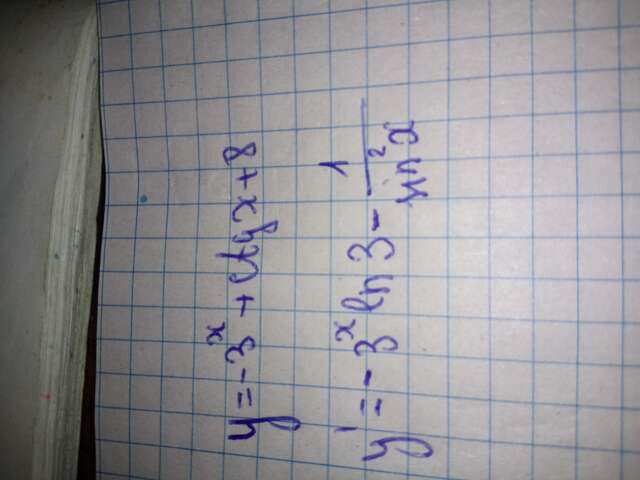 y = -3^x + ctg x + 8
y' = -3^x ln 3 - 1/sin^2 x